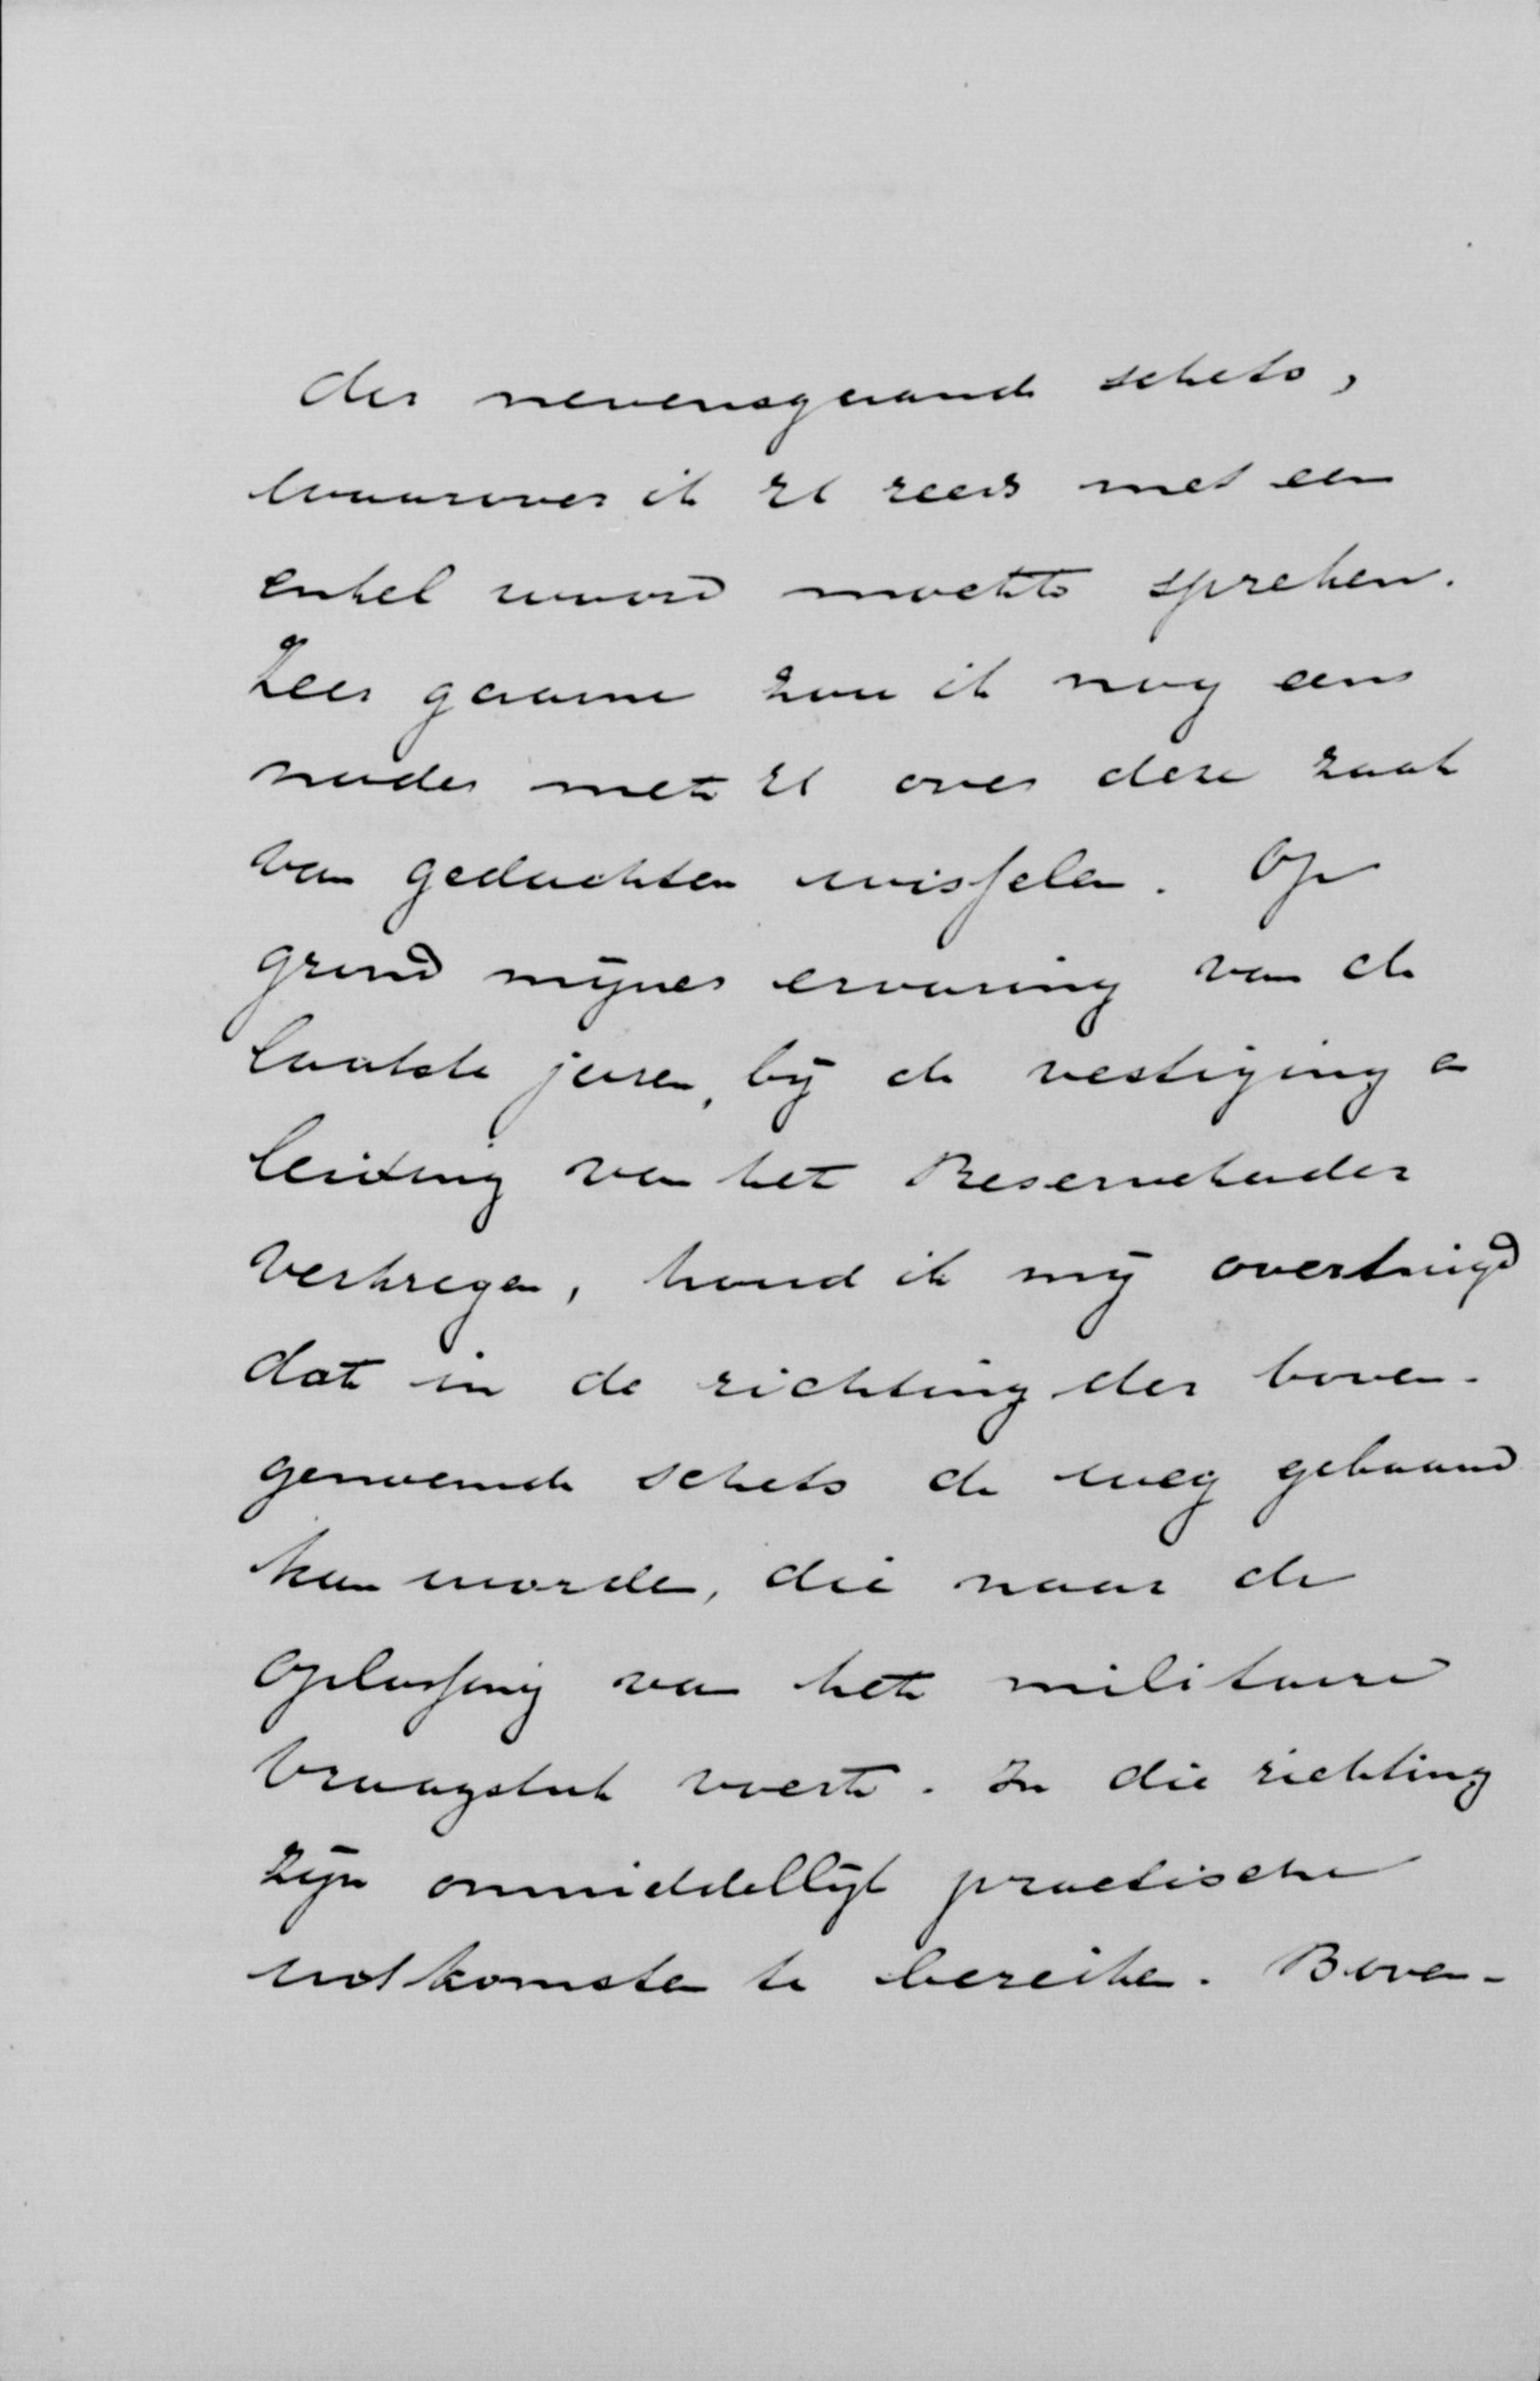 der nevensgaande schets,
waarover ik U reeds met een
enkel woord mocht spreken.
Zeer gaarne zou ik nog eens
nader met U over deze zaak
van gedachten wisselen. Op
grond mijner ervaring van de
laatste jaren, bij de vestiging en
leiding van het Reservekader
verkregen, houd ik mij overtuigd
dat in de richting der boven-
genoemde schets de weg gebaand
kan worden, die naar de
oplossing van het militaire
vraagstuk voert. In die richting
zijn onmiddellijk practische
uitkomsten te bereiken. Boven-